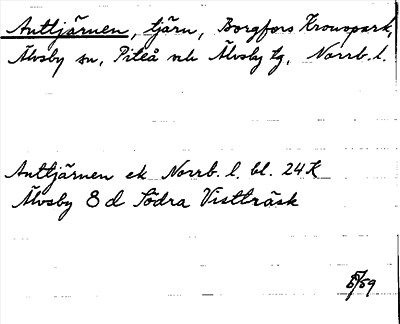 Anttjärnen, tjärn, Borgfors Kronopark,
Älvsby sn, Piteå och Älvsby tg, Norrb. l.
Anttjärnen ek Norrb. l. bl. 24K
Älvsby 8 d Södra Vistträsk
5/59